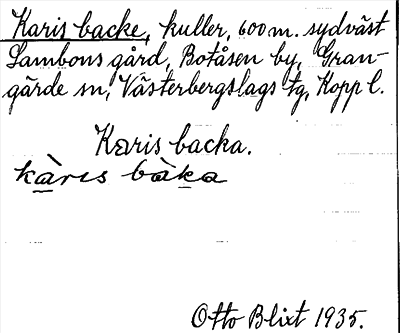 Karis backe, kuller, 600 m. sydväst
Lambons gård, Botåsen by, Gran-
gärde sn, Västerbergslags tg, Kopp l.
Karis backa.
kàrıs bàka
Otto Blixt 1935.